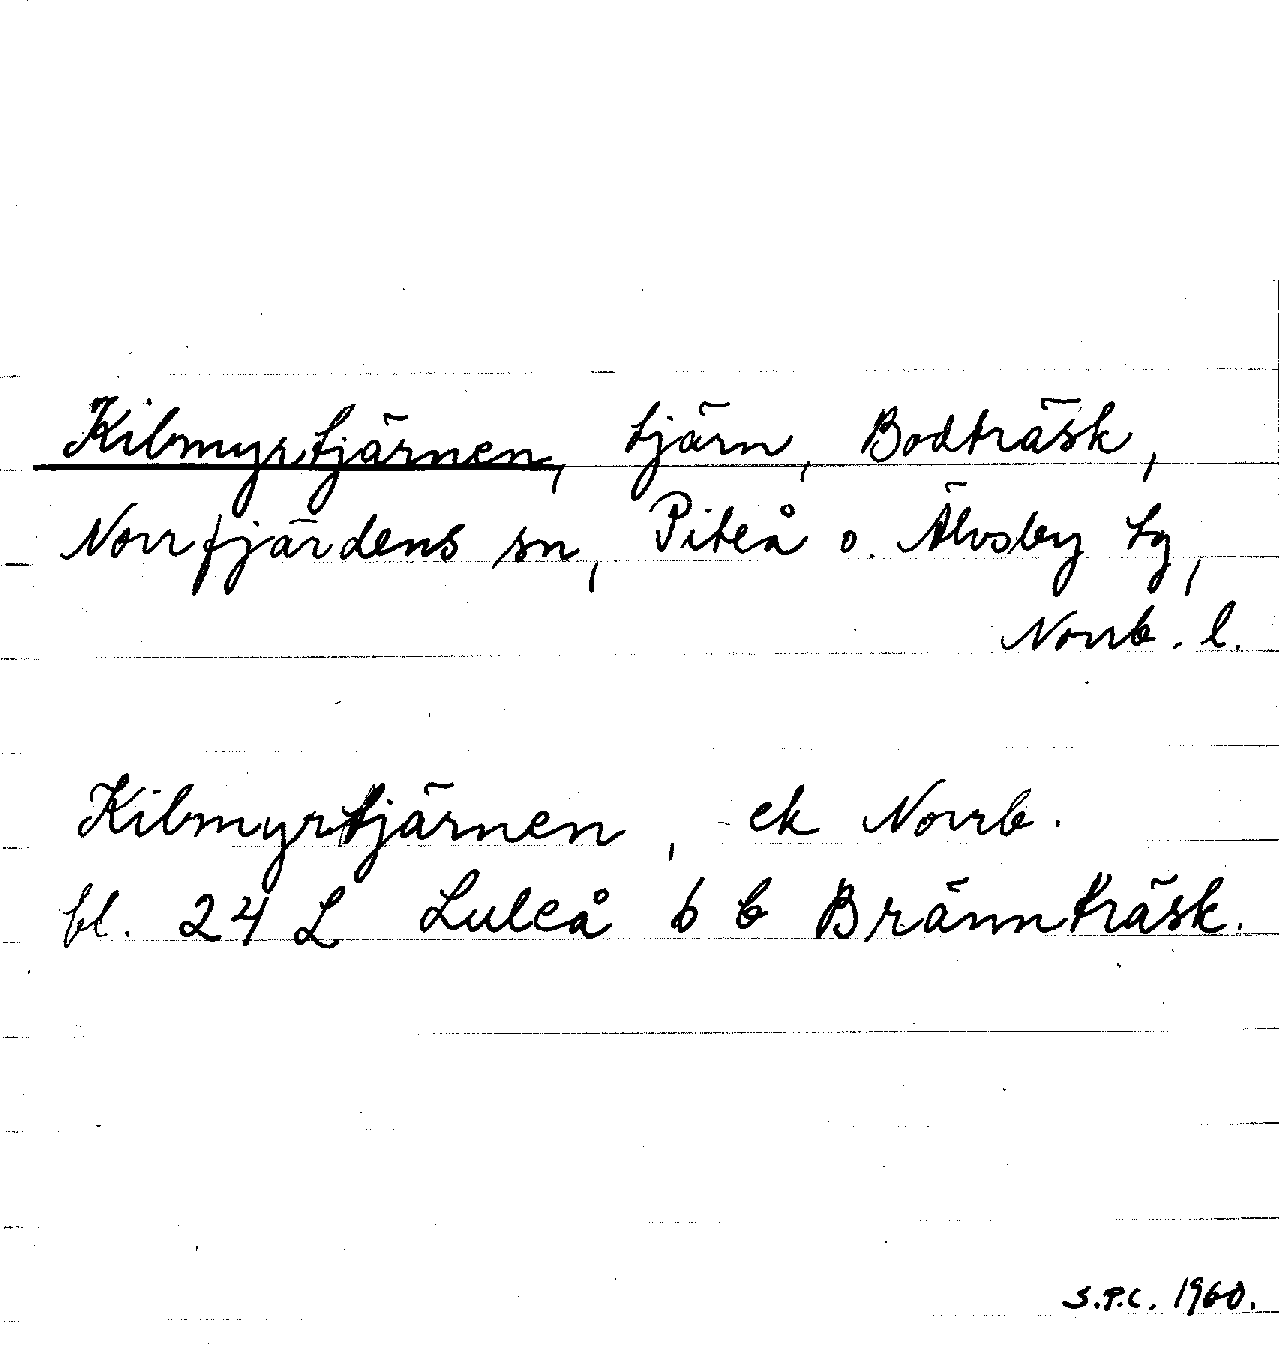 Kilmyrtjärnen, tjärn, Bodträsk,
Norrfjärdens sn, Piteå o. Älvsby tg,
Norrb. l.
Kilmyrtjärnen, ek Norrb.
bl. 24 L Luleå 6 b Brännträsk.
S.P.C. 1960.